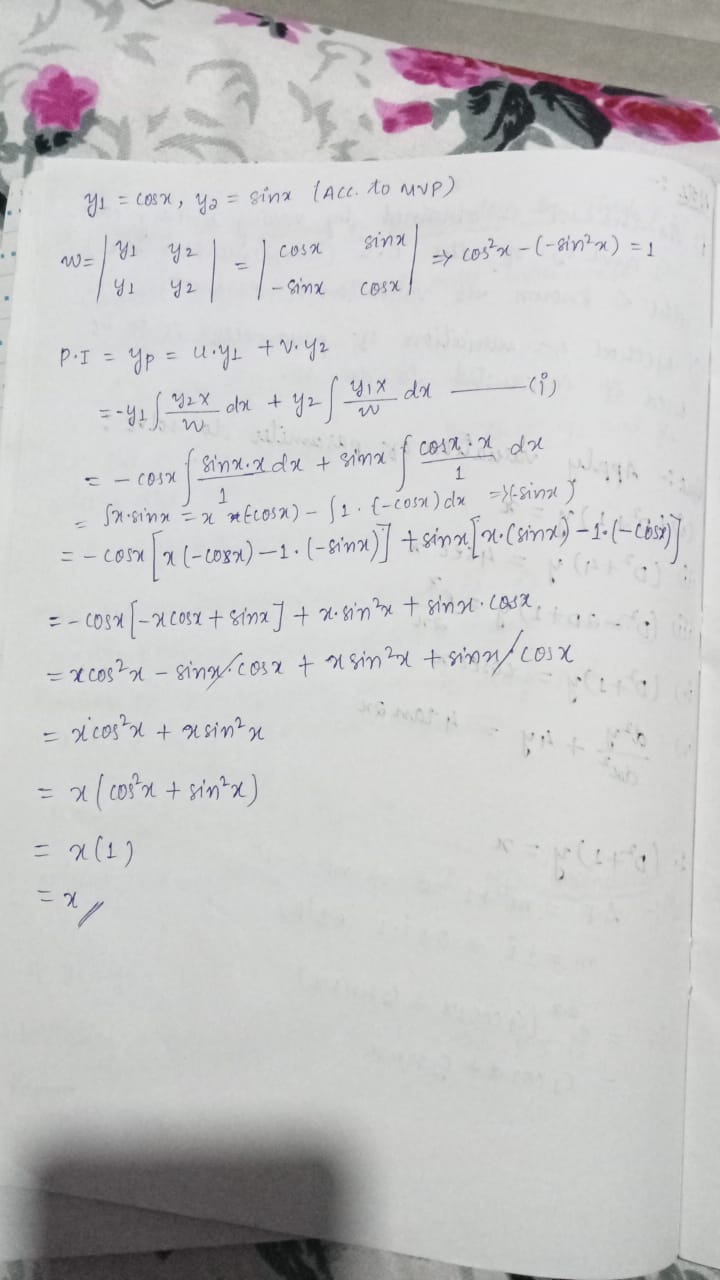 y1 = cosx, y2 = sinx (Acc. to MVP)
w = | y1 y2 | = | cosx sinx | => cos²x - (-sin²x) = 1
| y1 y2 | | -sinx cosx |
P.I = yp = u.y1 + v.y2
= -y1 ∫ y2x/w dx + y2 ∫ y1x/w dx —— (i)
= - cosx ∫ sinx.x/1 dx + sinx ∫ cosx.x/1 dx
= ∫x.sinx = x (-cosx) - ∫1.(-cosx) dx => (-sinx)
= - cosx [x(-cosx) - 1.(-sinx)] + sinx [x.(sinx) - 1.(-cosx)]
= - cosx [-xcosx + sinx] + x.sin²x + sinx.cosx
= xcos²x - sinx.cosx + xsin²x + sinx cosx
= xcos²x + xsin²x
= x(cos²x + sin²x)
= x(1)
= x //